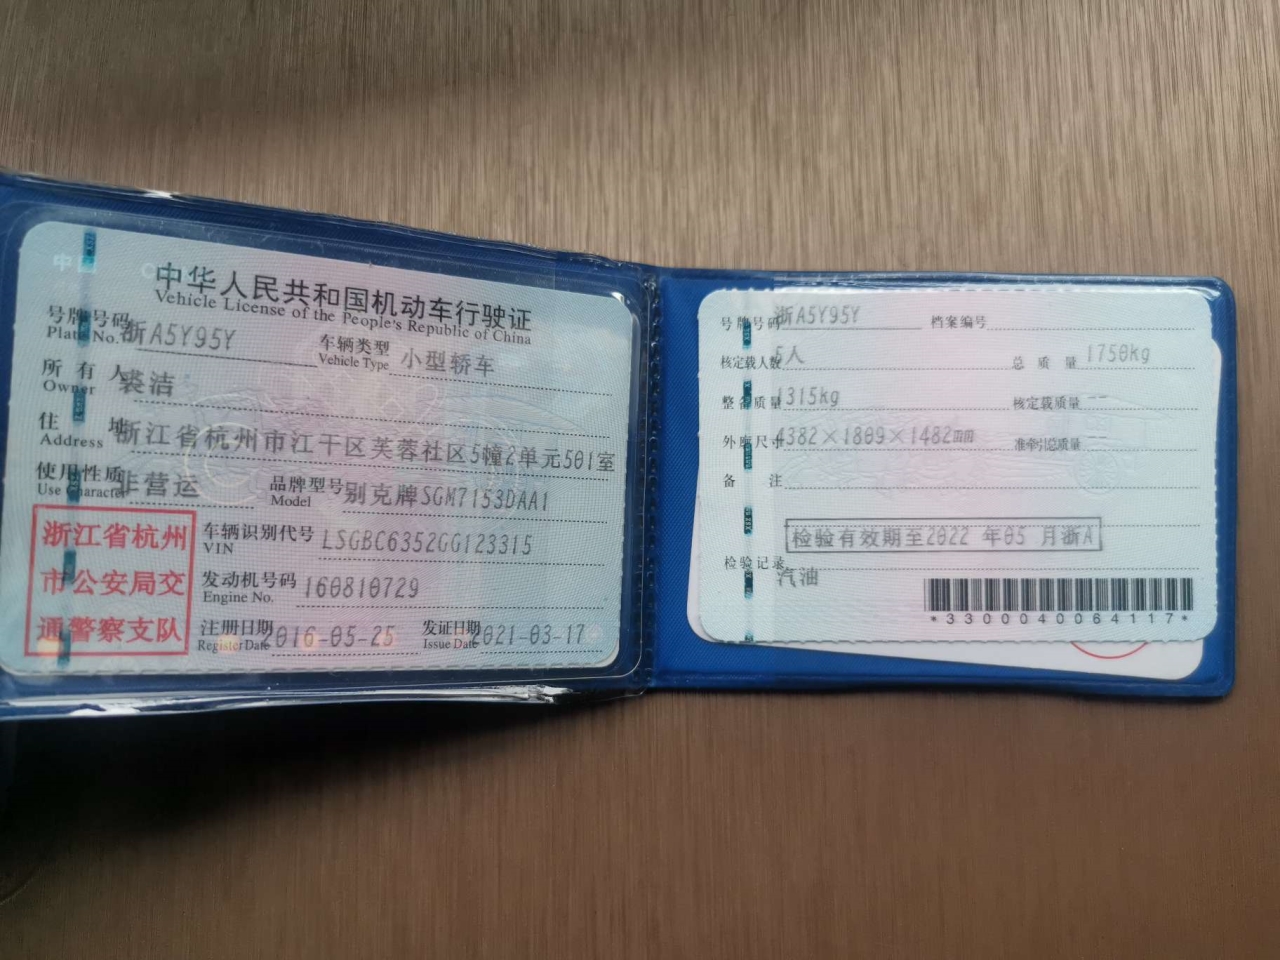 中华人民共和国机动车行驶证
Vehicle License of the People's Republic of China
号牌号码 浙A5Y95Y 车辆类型 小型轿车
Plate No. Vehicle Type
所有人 裘洁
Owner
住址 浙江省杭州市江干区芙蓉社区5幢2单元501室
Address
使用性质 非营运 品牌型号 别克牌SGM7153DAA1
Use Character Model
浙江省杭州
市公安局交
通警察支队
车辆识别代号 LSGBC6352GG123315
VIN
发动机号码 160810729
Engine No.
注册日期 2016-05-25 发证日期 2021-03-17
Register Date Issue Date
号牌号码 浙A5Y95Y 档案编号
核定载人数 5人 总质量 1750kg
整备质量 1315kg 核定载质量 --
外廓尺寸 4382×1809×1482mm 准牵引总质量 --
备注
检验有效期至2022 年05 月浙A
检验记录
汽油
*3300040064117*